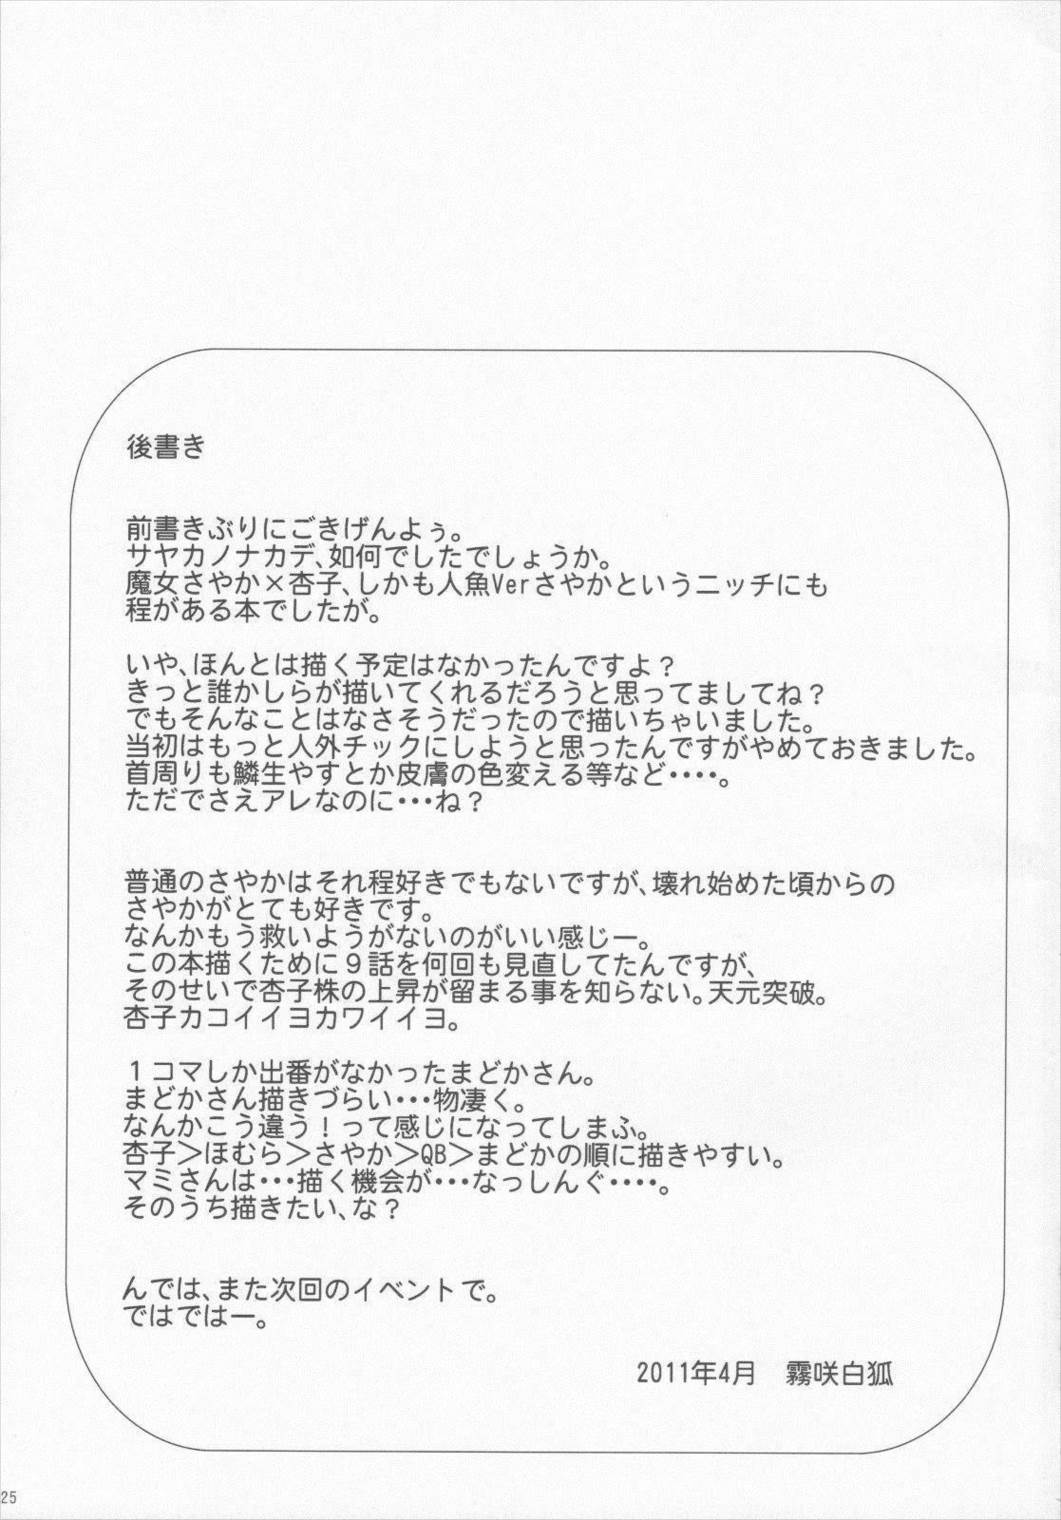 後書き
前書きぶりにごきげんよぅ。
サヤカノナカデ、如何でしたでしょうか。
魔女さやか×杏子、しかも人魚Verさやかというニッチにも
程がある本でしたが。
いや、ほんとは描く予定はなかったんですよ？
きっと誰かしらが描いてくれるだろうと思ってましてね？
でもそんなことはなさそうだったので描いちゃいました。
当初はもっと人外チックにしようと思ったんですがやめておきました。
首周りも鱗生やすとか皮膚の色変える等など・・・・。
ただでさえアレなのに・・・ね？
普通のさやかはそれ程好きでもないですが、壊れ始めた頃からの
さやかがとても好きです。
なんかもう救いようがないのがいい感じー。
この本描くために９話を何回も見直してたんですが、
そのせいで杏子株の上昇が留まる事を知らない。天元突破。
杏子カコイイヨカワイイヨ。
１コマしか出番がなかったまどかさん。
まどかさん描きづらい・・・物凄く。
なんかこう違う！って感じになってしまふ。
杏子＞ほむら＞さやか＞QB＞まどかの順に描きやすい。
マミさんは・・・描く機会が・・・なっしんぐ・・・・。
そのうち描きたい、な？
んでは、また次回のイベントで。
ではではー。
2011年4月　霧咲白狐
25